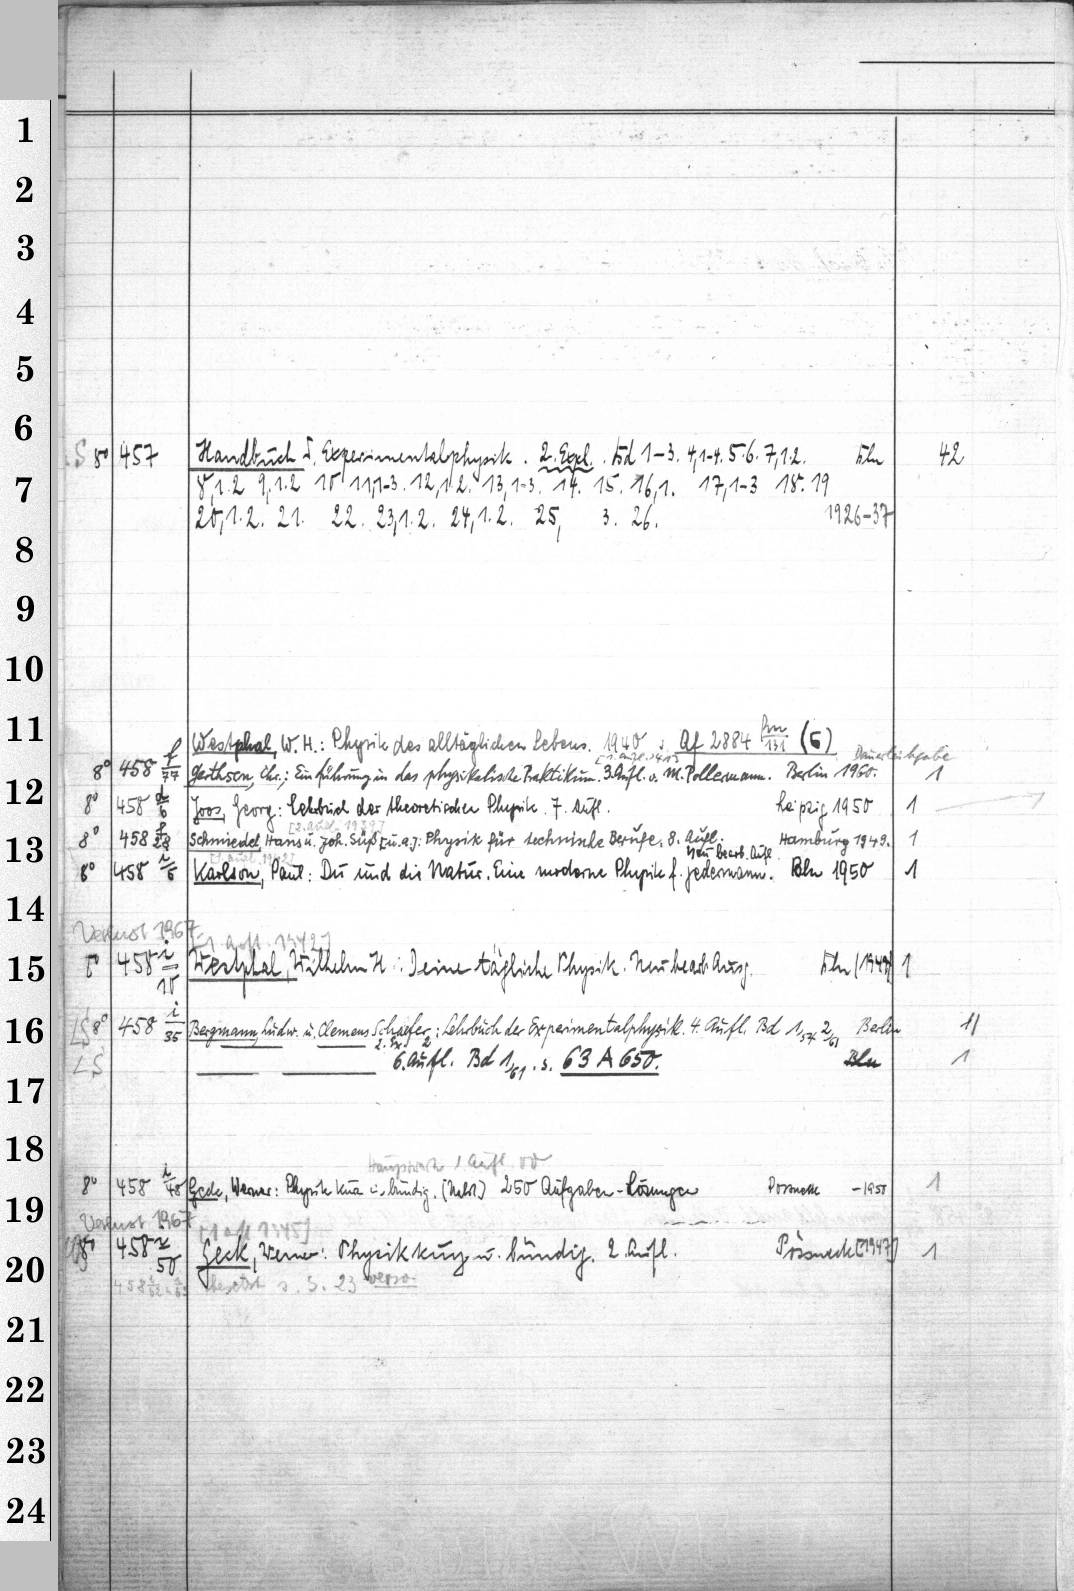 1
2
3
4
5
6
LS 8° 457 Handbuch d. Experimentalphysik. 2. Expl. Bd 1-3. 4,1-4. 5. 6. 7,1.2. Bln 42
7
8,1.2 9,1.2 10 11,1-3. 12,1.2. 13,1-3. 14. 15. 16,1. 17,1-3 18. 19
20,1.2. 21. 22. 23,1.2. 24,1.2. 25, 3. 26. 1926-37
8
9
10
11
Westphal, W. H.: Physik des alltäglichen Lebens. 1940 s. Af 2884 131 (5)
[1. Aufl. Dauerleihgabe
8° 458 f/77 Gerthsen, Chr.: Einführung in das physikalische Praktikum. 3. Aufl. v. M. Pollermann. Berlin 1960. 1
12
8° 458 /6 Joos, Georg: Lehrbuch der theoretischen Physik. 7. Aufl. Leipzig 1950 1
[2. Aufl. 1939?]
8° 458 f/28 Schmiedel, Hans u. Joh. Süß [u. a.]: Physik für technische Berufe. 8. Aufl. Hamburg 1949. 1
13
Neu bearb. Aufl
8° 458 i/5 Karlson, Paul: Du und die Natur. Eine moderne Physik f. jedermann. Bln 1950 1
14
Verlust 1967
[1 Aufl. 1942]
15
8° 458 i/10 Westphal, Wilhelm H.: Deine tägliche Physik. Neubearb. Ausg. Bln (1949) 1
16
LS 8° 458 i/35 Bergmann, Ludw. u. Clemens Schaefer: Lehrbuch der Experimentalphysik. 4. Aufl. Bd 1,54 2/61 Berlin 1/
2. Ex. 2
LS 6. Aufl. Bd 1/61. s. 63 A 650. Bln 1
17
18
Hauptwerk 1 Aufl.
8° 458 i/48 Gede, Werner: Physik kurz u. bündig. [Nebst] 250 Aufgaben-Lösungen Pössneck - 1950 1
19
Verlust 1967
[1 Aufl 1945]
8° 458 i/50 Geck, Werner: Physik kurz u. bündig. 2. Aufl. Pössneck [1947] 1
20
458 besetzt s. S. 23 verso
21
22
23
24